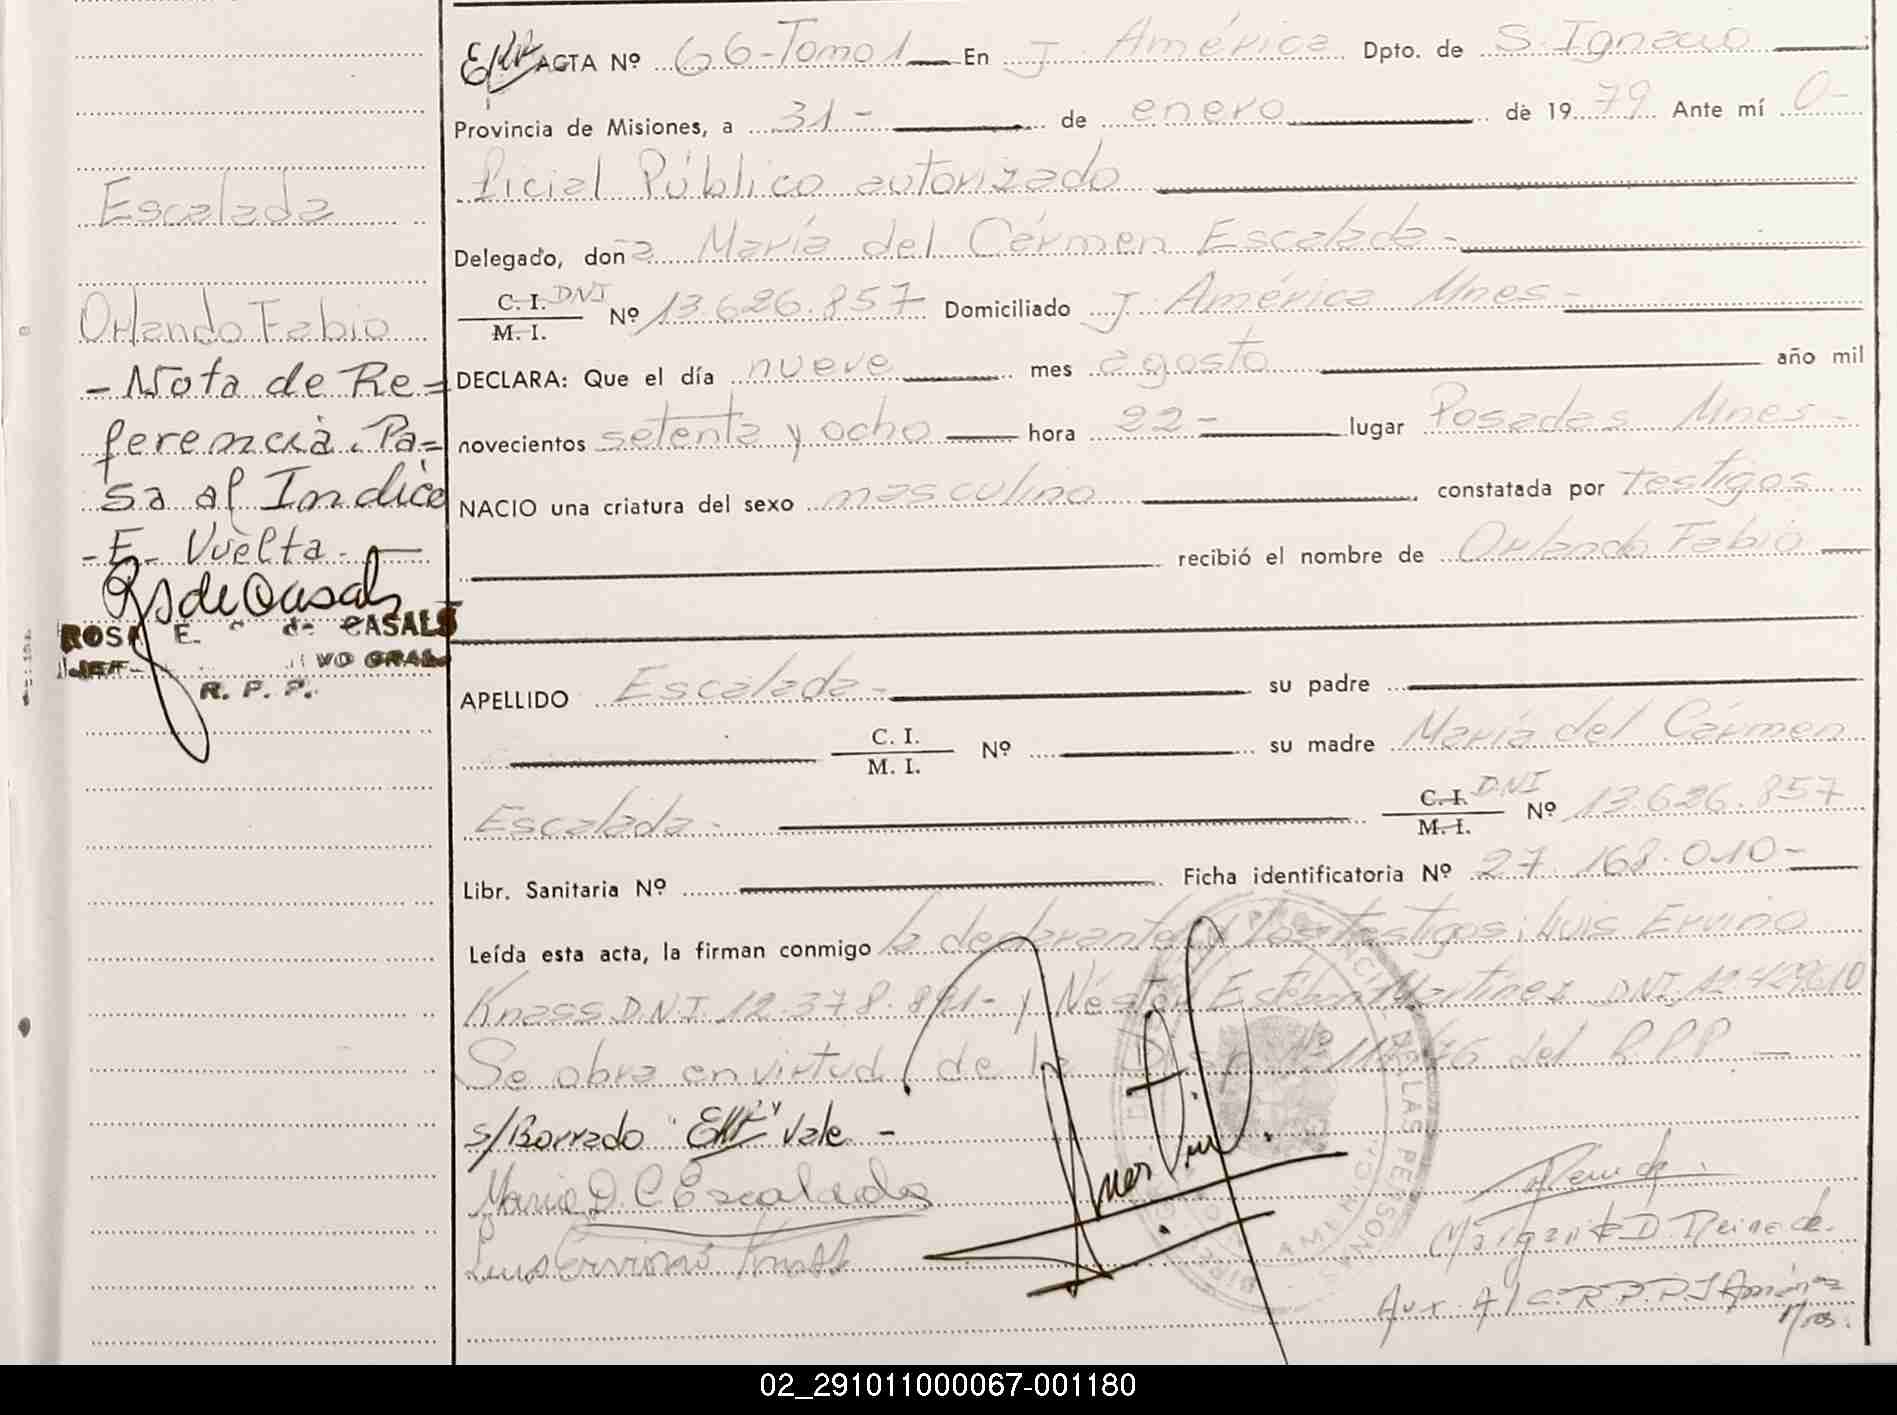 Escalada
Orlando Fabio
- Nota de Re=
ferencia. Pa=
sa al Indice
- E- Vuelta.-
ROSA E. de CASALS
R. P. P.
ACTA Nº 66-Tomo 1 En J. América Dpto. de S. Ignacio
Provincia de Misiones, a 31- de enero de 1979 Ante mí O-
ficial Público autorizado
Delegado, don a María del Cármen Escalada-
C. I. DNI
M. I.
Nº 13.626.857 Domiciliado J. América Mnes-
DECLARA: Que el día nueve mes agosto año mil
novecientos setenta y ocho hora 22- lugar Posadas Mnes-
NACIO una criatura del sexo masculino constatada por testigos
recibió el nombre de Orlando Fabio
APELLIDO Escalada- su padre
C. I.
M. I.
Nº su madre María del Cármen
Escalada-
C. I. DNI
M. I.
Nº 13.626.857
Libr. Sanitaria Nº Ficha identificatoria Nº 27.168.010-
Leída esta acta, la firman conmigo la declarante y los testigos: Luis Ervino
Knass D.N.I. 12.378.891- y Néstor Esteban Martinez DNI. 12.429.610
Se obra en virtud de la Disp. Nº del R.P.P.
s/Borrado Vale -
Maria D. C Escalada
Luis Ervino
Margarita D. Reina de
Aux. A/C. R.P.P. J América
Mnes.
DE LAS PERSONAS
02_291011000067-001180